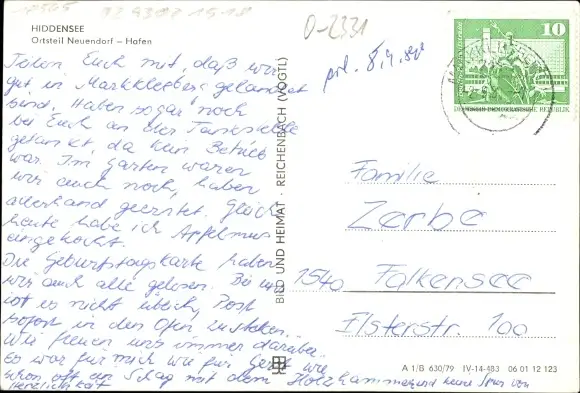 HIDDENSEE
Ortsteil Neuendorf – Hafen
0-2331
10
DEUTSCHE DEMOKRATISCHE REPUBLIK
Teilen Euch mit, daß wir
gut in Markkleeberg gelandet
sind. Haben sogar noch
bei Euch an der Tankstelle
getankt, da kein Betrieb
war. Im Garten waren
wir auch noch, haben
allerhand geerntet. Gleich
heute habe ich Apfelmus
eingekocht.
Die Geburtstagskarte haben
wir auch alle gelesen. Bei uns
ist es nicht üblich, Post
sofort in den Ofen zu stecken.
Wir freuen uns immer darüber.
Es war für mich wie für Gerd wie
schon oft ein Schlag mit dem Holzhammer und keine Spur von
Herzlichkeit
BILD UND HEIMAT · REICHENBACH (VOGTL)
Familie
Zerbe
1540 Falkensee
Elsterstr. 100
A 1/B 630/79 IV-14-483 06 01 12 123